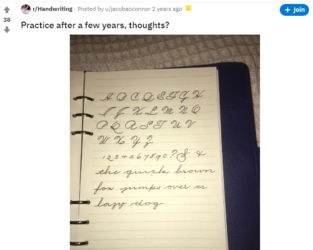 r/Handwriting · Posted by u/jacobaoconnor 2 years ago
Join
38
Practice after a few years, thoughts?
A B C D E F G H
I J K L M N O
P Q R S T U V
W X Y Z
1 2 3 4 5 6 7 8 9 0 ? & &
the quick brown
fox jumps over a
lazy dog